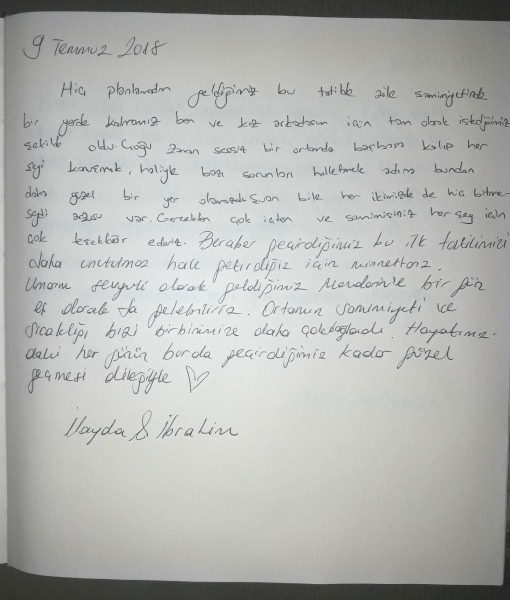 9 Temmuz 2018
Hiç planlamadan geldiğimiz bu tatilde aile samimiyetinde
bir yerde kalmamız ben ve kız arkadaşım için tam olarak istediğimiz
şekilde oldu. Çoğu zaman sessiz bir ortamda başbaşa kalıp her
şeyi konuşmak, haliyle bazı sorunları halletmek adına bundan
daha güzel bir yer olamazdı. Şuan bile her ikimizde de hiç bitme-
seydi arzusu var. Gerçekten çok içten ve samimisiniz her şey için
çok teşekkür ederiz. Beraber geçirdiğimiz bu ilk tatilimizi
daha unutulmaz hale getirdiğiz için minnettarız.
Umarım sevgili olarak geldiğimiz Mandorin'e bir gün
eş olarak da gelebiliriz. Ortamın samimiyeti ve
sıcaklığı bizi birbirimize daha çok bağladı. Hayatımız-
daki her günün burda geçirdiğimiz kadar güzel
geçmesi dileğiyle
İlayda & İbrahim